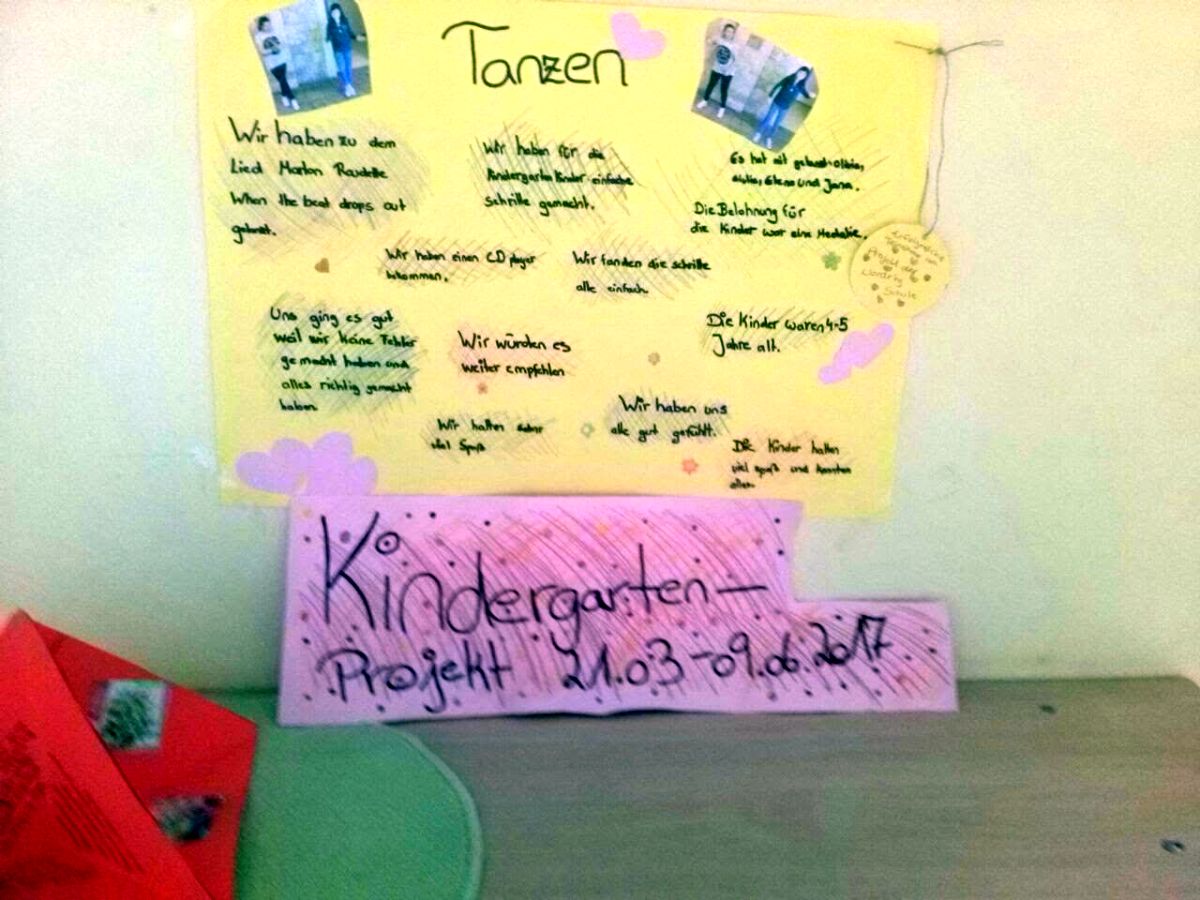 Tanzen
Wir haben zu dem
Lied Marlon Roudette
When the beat drops out
getanzt.
Wir haben für die
Kindergartenkinder einfache
schritte gemacht.
Es hat mit getanzt: Olivia,
Elena und Jana.
Die Belohnung für
die Kinder war eine Medaille.
Wir haben einen CD player
bekommen.
Wir fanden die schritte
alle einfach.
Uns ging es gut
weil wir keine Fehler
gemacht haben und
alles richtig gemacht
haben.
Wir würden es
weiter empfehlen
Die Kinder waren 4-5
Jahre alt.
Wir hatten
viel Spaß
Wir haben uns
alle gut gefühlt.
Die Kinder hatten
viel spaß und konnten
alles.
Projekt der
Schule
Kindergarten-
Projekt 21.03-09.06.2017